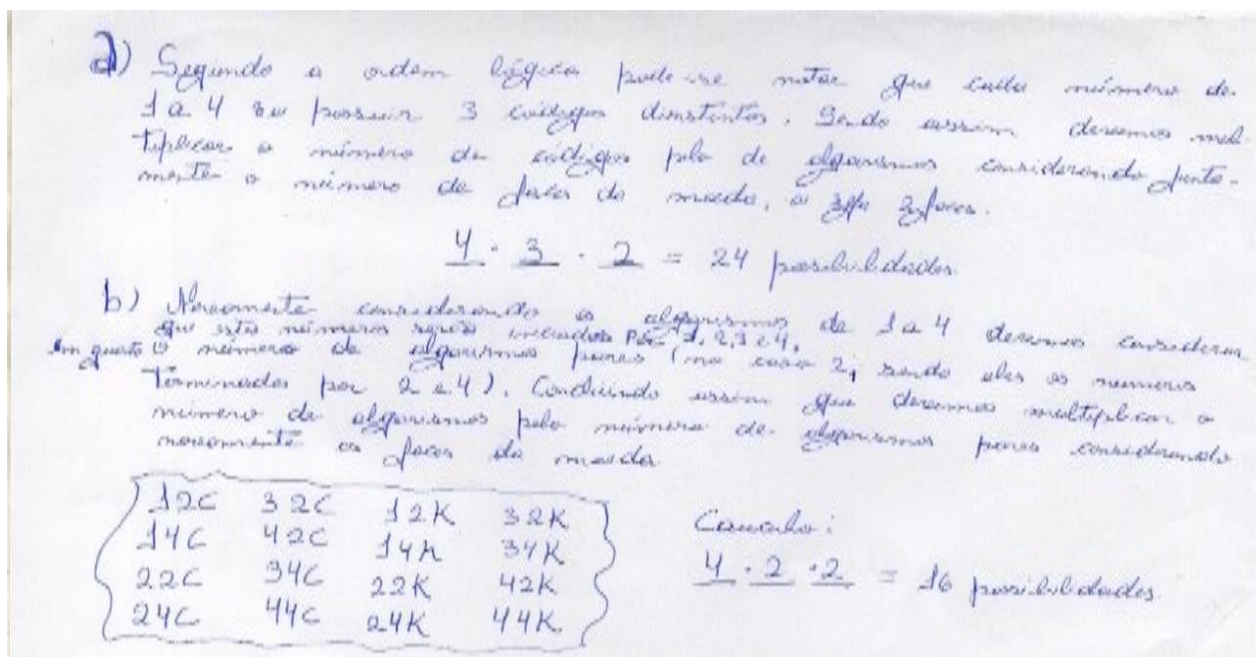 a) Seguindo a ordem lógica pode-se notar que cada número de
1 a 4 possuir 3 códigos distintos. Sendo assim devemos mul-
tiplicar o número de códigos pelo de algarismos considerando junta-
mente o número de faces da moeda, 2 faces.
4 . 3 . 2 = 24 possibilidades
b) Novamente considerando os algarismos de 1 a 4 devemos considerar
que esta números serão iniciados por 1, 2, 3 e 4,
o número de algarismos pares (no caso 2, sendo eles os números
terminados por 2 e 4). Concluindo assim que devemos multiplicar o
número de algarismos pelo número de algarismos pares considerando
novamente as faces da moeda
12C 32C 12K 32K
14C 42C 14K 34K
22C 34C 22K 42K
24C 44C 24K 44K
Cauculo:
4 . 2 . 2 = 16 possibilidades